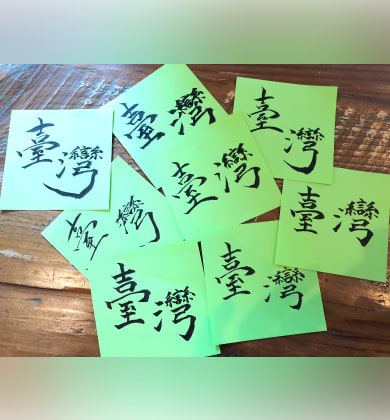 臺灣
臺灣
臺灣
臺灣
臺灣
臺灣
臺灣
臺灣